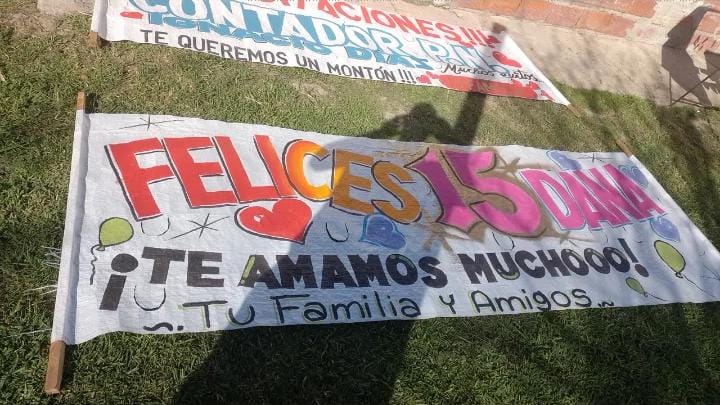 CIONES!!!
CONTADOR
IGNACIO DIAZ
TE QUEREMOS UN MONTÓN!!!
Muchos éxitos
FELICES 15 DANA
¡TE AMAMOS MUCHOOO!
~. Tu Familia y Amigos ~